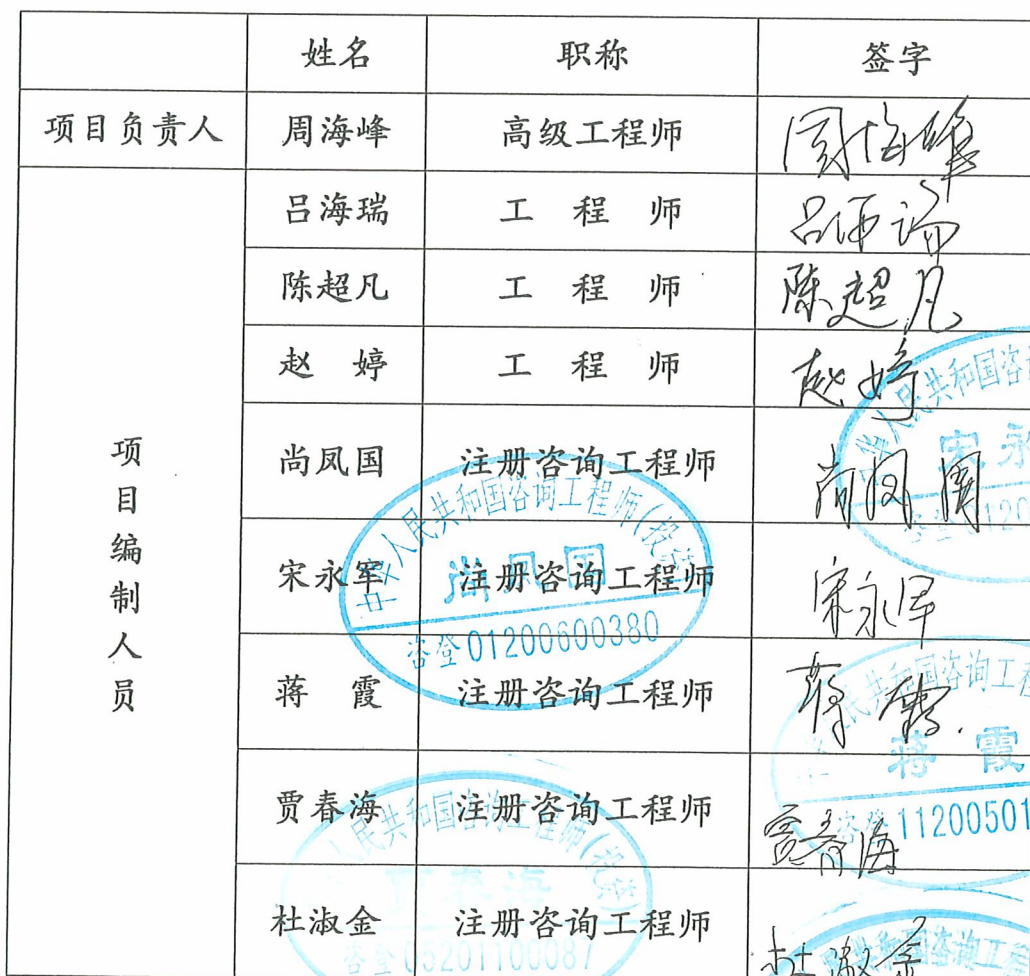 姓名 职称 签字
项目负责人 周海峰 高级工程师 周海峰
吕海瑞 工 程 师 吕海瑞
陈超凡 工 程 师 陈超凡
赵 婷 工 程 师 赵婷
项目编制人员
尚凤国 注册咨询工程师 尚凤国
宋永军 注册咨询工程师 宋永军
蒋 霞 注册咨询工程师 蒋霞
贾春海 注册咨询工程师 贾春海
杜淑金 注册咨询工程师 杜淑金
人民共和国咨
宋永
中华人民共和国咨询工程师(投资)
尚凤国
咨登01200600380
共和国咨询工程
蒋霞
咨登11200501
民共和国咨询工程师(投资)
贾春海
咨登05201100087
共和国咨询工程